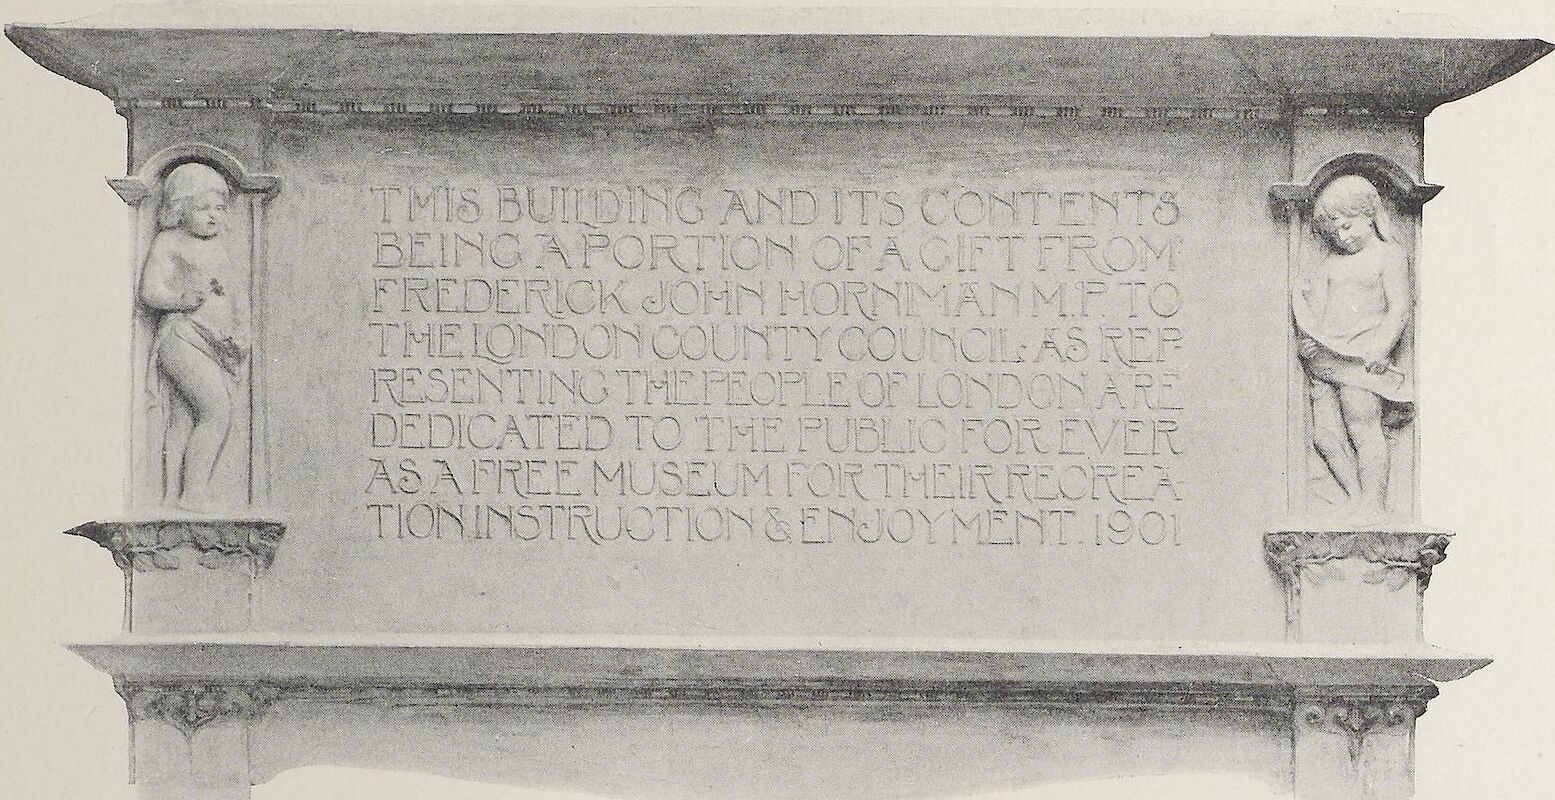 THIS BUILDING AND ITS CONTENTS
BEING A PORTION OF A GIFT FROM
FREDERICK JOHN HORNIMAN M.P. TO
THE LONDON COUNTY COUNCIL: AS REP-
RESENTING THE PEOPLE OF LONDON ARE
DEDICATED TO THE PUBLIC FOR EVER
AS A FREE MUSEUM FOR THEIR RECREA-
TION. INSTRUCTION & ENJOYMENT. 1901